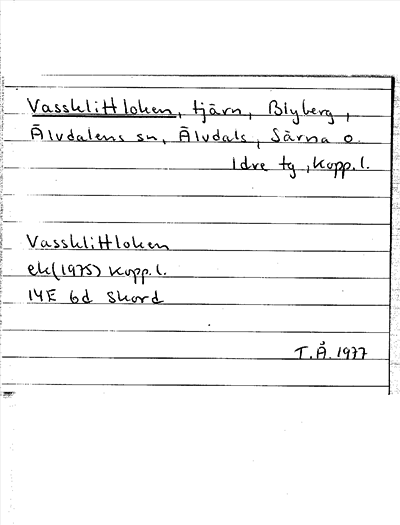 Vassklittloken, tjärn, Blyberg,
Älvdalens sn, Älvdals, Särna o.
Idre tg, Kopp. l.
Vassklittloken
ek (1975) Kopp. l.
14E 6d Skord
T.Å. 1977